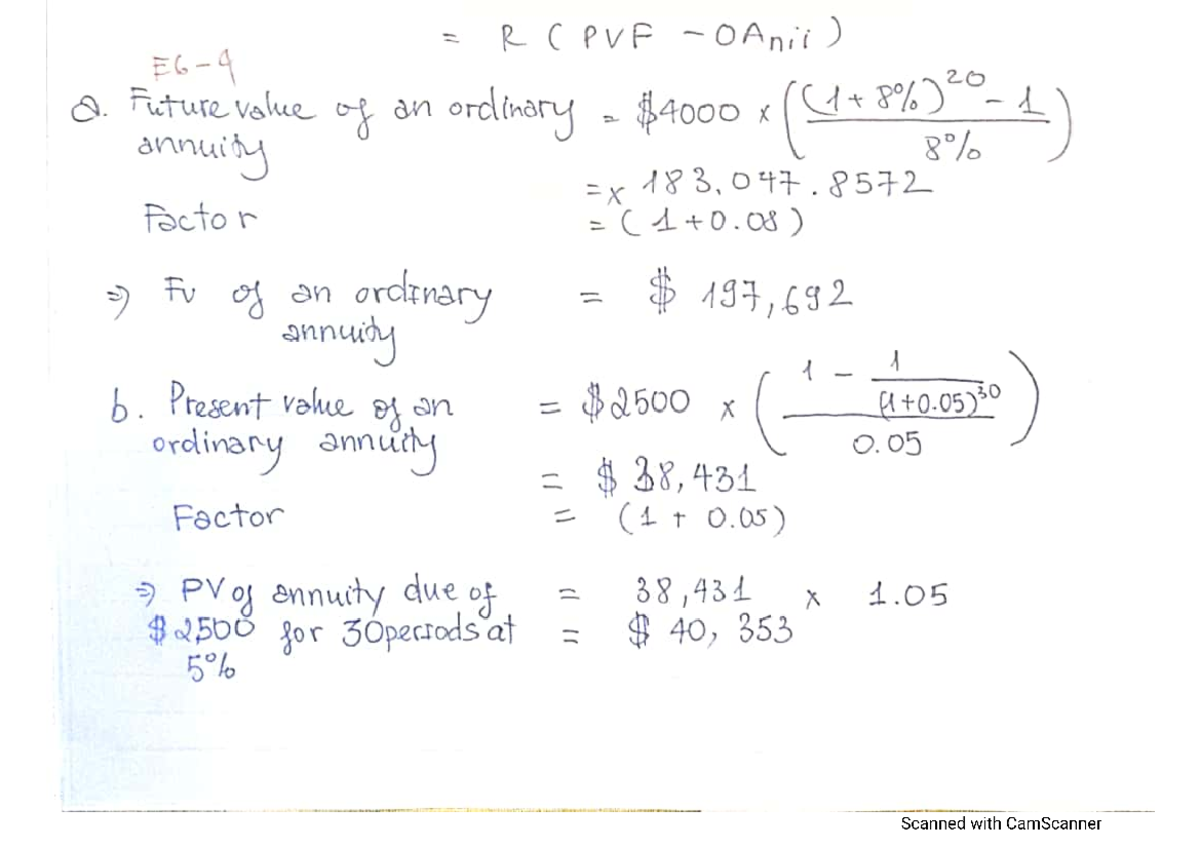 = R ( PVF - OAnii )
E6-4
a. Future value of an ordinary = $4000 x ( (1+ 8%)^20 - 1 / 8% )
annuity
=x 183,047.8572
Factor = ( 1 + 0.08 )
=> Fv of an ordinary = $ 197,692
annuity
b. Present value of an = $2500 x ( 1 - 1 / (1+0.05)^30 / 0.05 )
ordinary annuity
= $ 38,431
Factor = (1 + 0.05)
=> PV of annuity due of = 38,431 x 1.05
$2,500 for 30 periods at = $ 40, 353
5%
Scanned with CamScanner